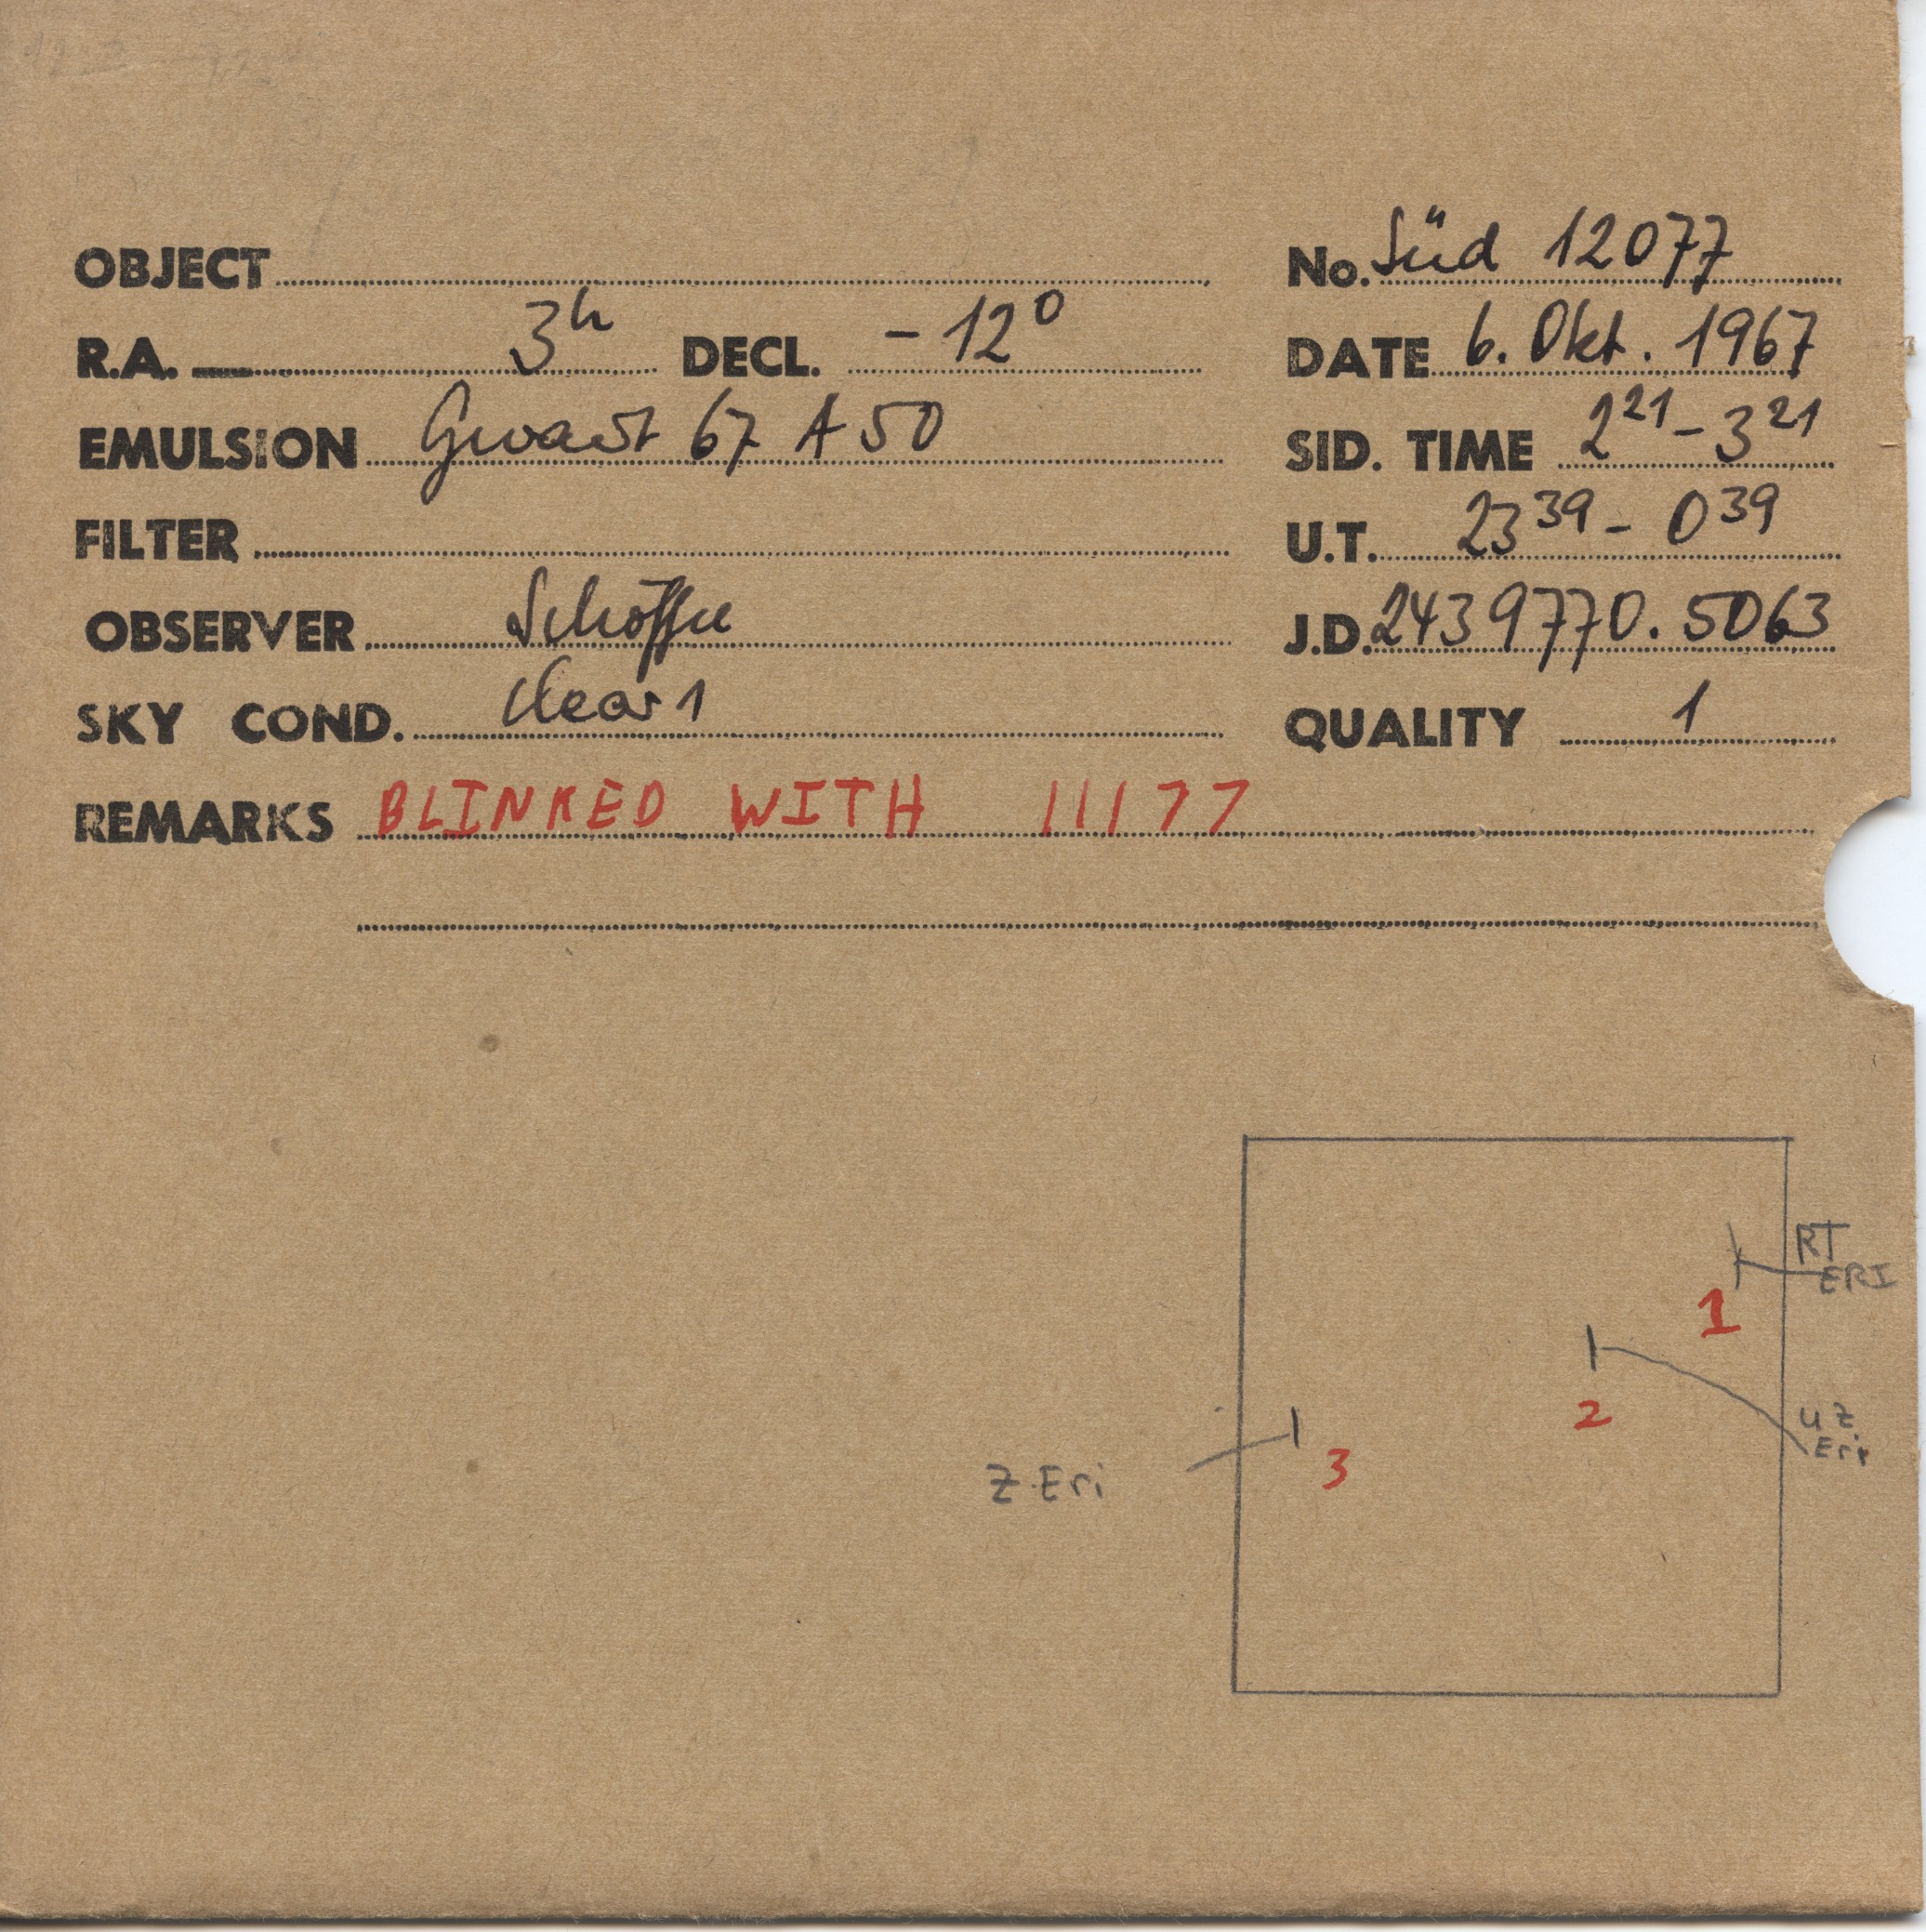 OBJECT No. Süd 12077
R.A. 3h DECL. -12° DATE 6. Okt. 1967
EMULSION Gevaert 67 A 50 SID. TIME 2 21 - 3 21
FILTER U.T. 23 39 - 0 39
OBSERVER Schöffel J.D. 2439770.5063
SKY COND. clear 1 QUALITY 1
REMARKS BLINKED WITH 11177
RT
ERI
1
2
UZ
Eri
3
Z Eri